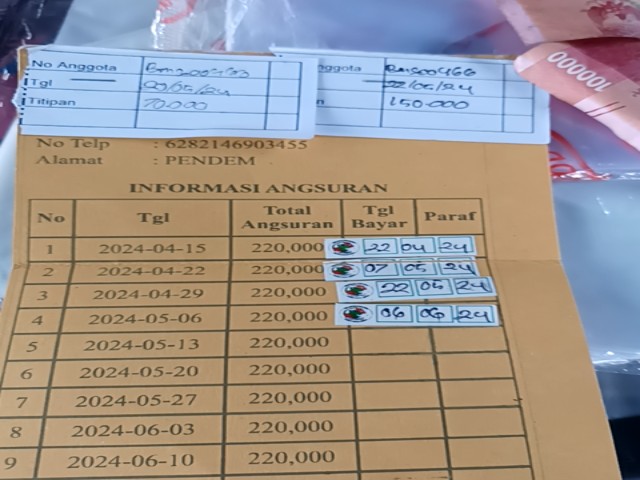 No Anggota
Tgl
Titipan 70.000
ggota BMS00466
22/05/24
n 150.000
100000
No Telp : 6282146903455
Alamat : PENDEM
INFORMASI ANGSURAN
No Tgl Total Angsuran Tgl Bayar Paraf
1 2024-04-15 220,000 22 04 24
2 2024-04-22 220,000 07 05 24
3 2024-04-29 220,000 22 05 24
4 2024-05-06 220,000 06 06 24
5 2024-05-13 220,000
6 2024-05-20 220,000
7 2024-05-27 220,000
8 2024-06-03 220,000
9 2024-06-10 220,000